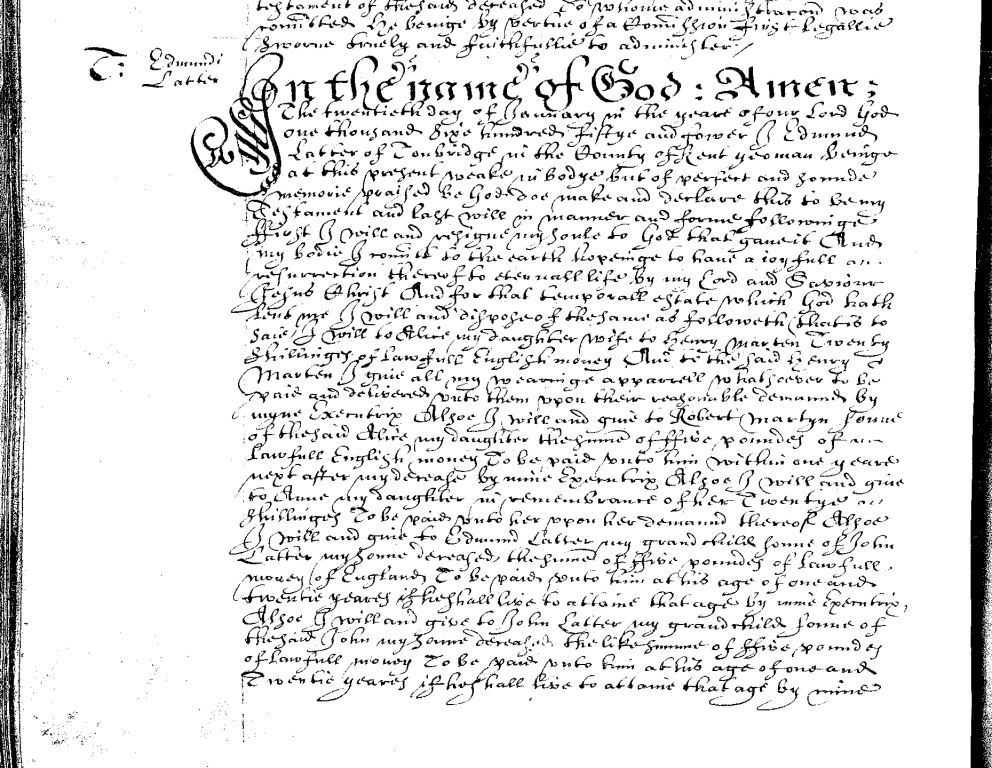 testament of the said deceased To whome administracon was
comitted He beinge by vertue of a Comission first Legallie
sworne truely and faithfullie to administer./
T: Edmundi
Latter
In the name of God: Amen:
The twentieth day of January in the yeare of our Lord God
one thousand sixe hundred fiftye and fower I Edmund
Latter of Tonbridge in the County of Kent yeoman beinge
at this present weake in bodye but of perfect and sounde
memorie praised be God doe make and declare this to be my
Testament and last will in manner and forme followinge
ffirst I will and resigne my soule to God that gave it And
my bodie I comitt to the earth hopeinge to have a ioyfull
resurrection thereof to eternall life by my Lord and Saviour
Jesus Christ And for that temporall estate which God hath
lent me I will and dispose of the same as followeth (that is to
saie) I will to Alice my daughter wife to Henry Marten Twenty
Shillinges of lawfull English money And to the said Henry
Marten I give all my wearinge apparrell whatsoever to be
paid and delivered unto them upon their reasonable demand by
myne Executrix Alsoe I will and give to Robert Martyn sonne
of the said Alice my daughter the summe of ffive poundes of
Lawfull English money To be paid unto him within one yeare
next after my decease by mine Executrix Alsoe I will and give
to Anne my daughter in remembrance of her Twentye
Shillinges To be paid unto her upon her demannd thereof Alsoe
I will and give to Edmund Latter my grandchild sonne of John
Latter my sonne deceased the summe of ffive poundes of lawfull
money of England To be paid unto him at his age of one and
twentie yeares if hee shall live to attaine that age by mine Executrix,
Alsoe I will and give to John Latter my grandchild sonne of
the said John my sonne deceased the like summe of ffive poundes
of lawfull money To be paid unto him at his age of one and
Twentie yeares if hee shall live to attaine that age by mine